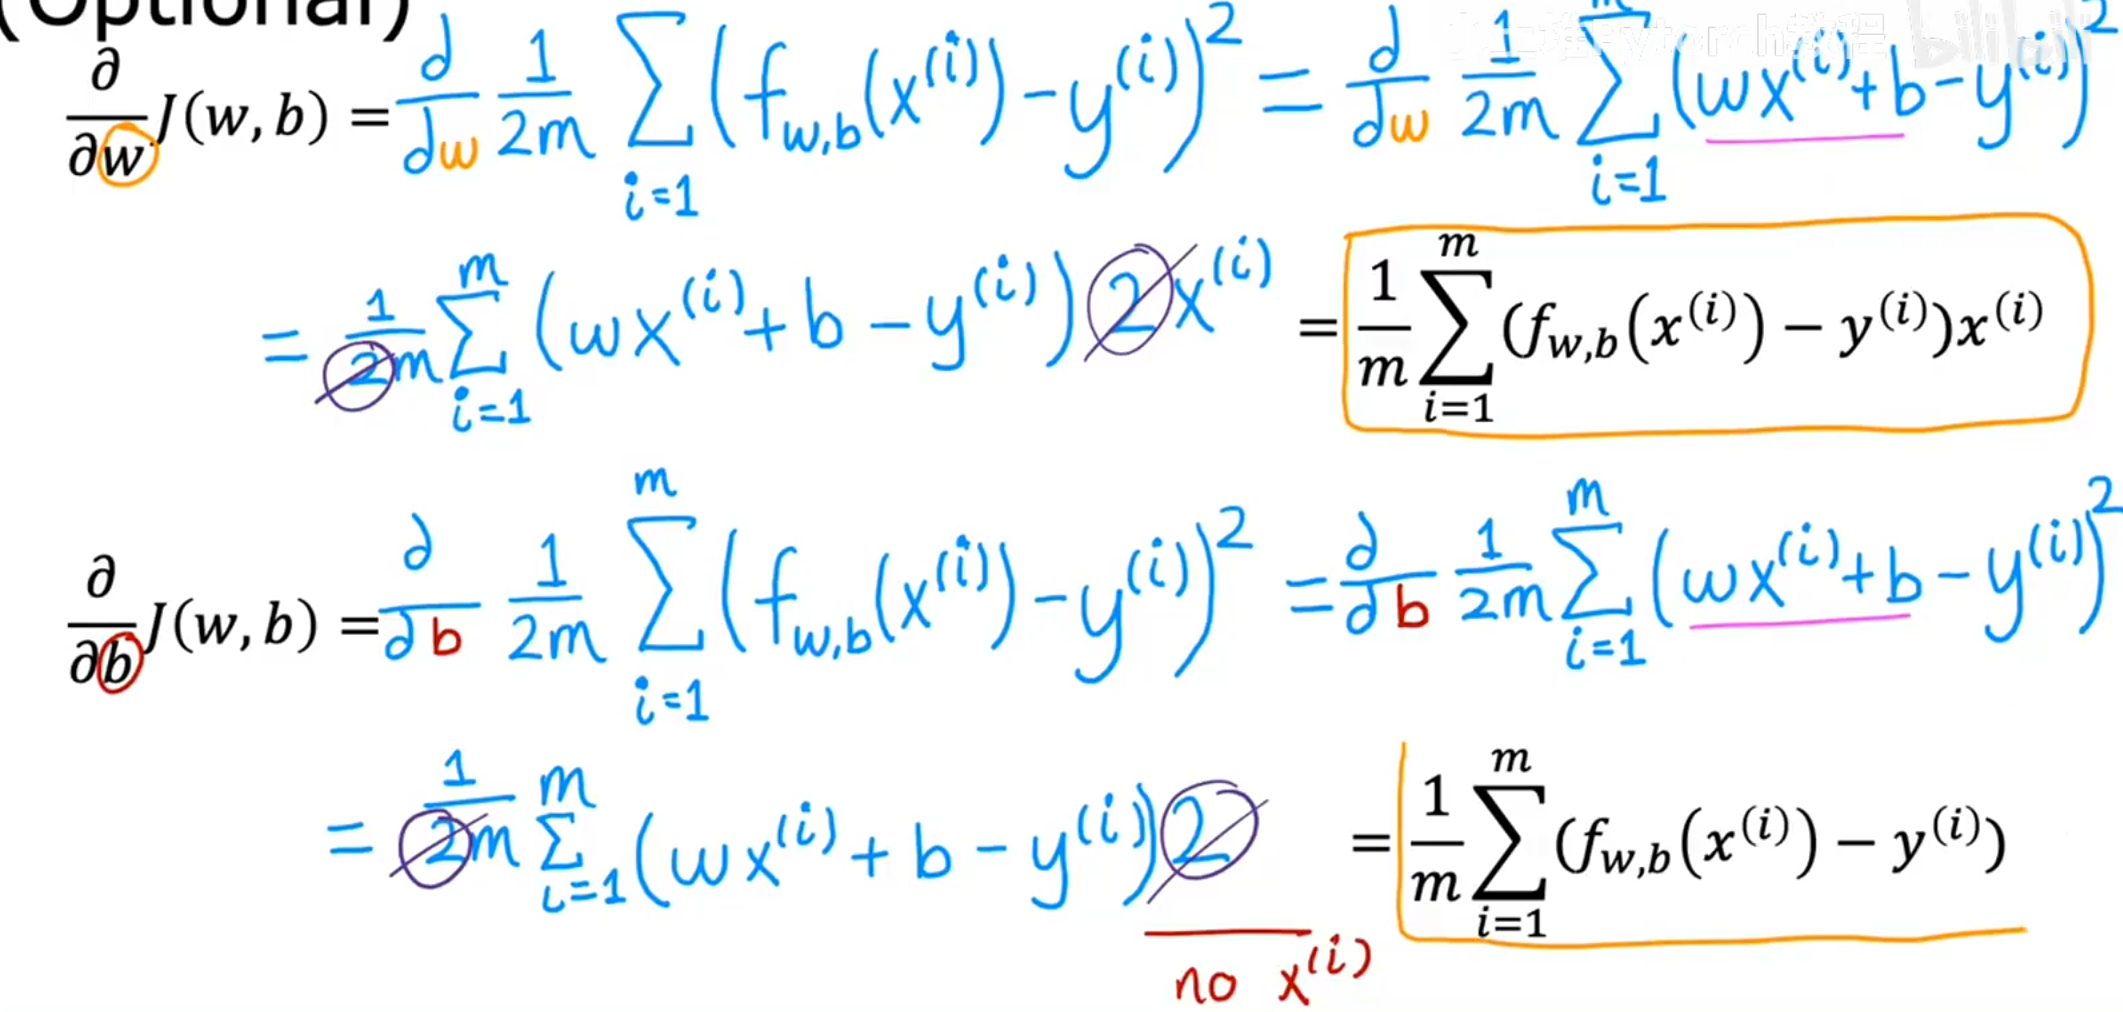 (Optional)
∂/∂w J(w, b) = d/dw 1/2m ∑_{i=1} (f_{w,b}(x^{(i)}) - y^{(i)})^2 = d/dw 1/2m ∑_{i=1}^{m} (wx^{(i)} + b - y^{(i)})^2
= 1/2m ∑_{i=1}^{m} (wx^{(i)} + b - y^{(i)}) 2x^{(i)} = 1/m ∑_{i=1}^{m} (f_{w,b}(x^{(i)}) - y^{(i)})x^{(i)}
∂/∂b J(w, b) = ∂/∂b 1/2m ∑_{i=1}^{m} (f_{w,b}(x^{(i)}) - y^{(i)})^2 = ∂/∂b 1/2m ∑_{i=1}^{m} (wx^{(i)} + b - y^{(i)})^2
= 1/2m ∑_{i=1}^{m} (wx^{(i)} + b - y^{(i)}) 2 = 1/m ∑_{i=1}^{m} (f_{w,b}(x^{(i)}) - y^{(i)})
no x^{(i)}